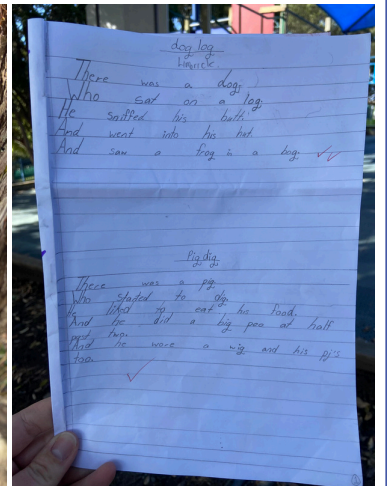 dog log
Limerick
There was a dog
Who sat on a log.
He sniffed his
And went into his hut.
And saw a frog in a bog.
Pig dig
There was a pig
Who started to dig.
He liked to eat his food.
And he did a big poo at half
past two.
And he wore a wig and his pj's
too.